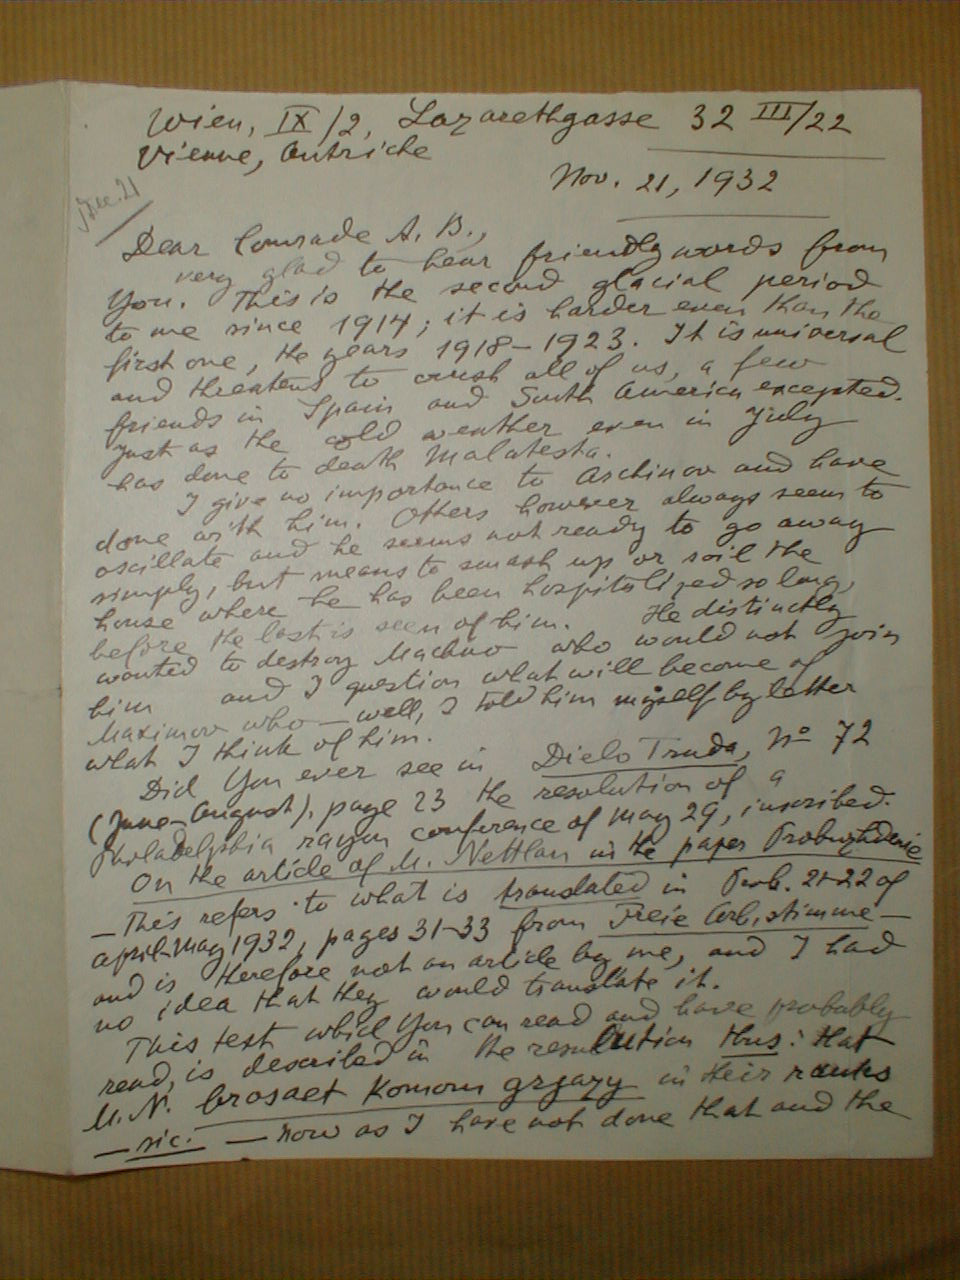 Wien, IX/2, Lazarethgasse 32 III/22
Vienne, Autriche
Nov. 21, 1932
Dec. 21
Dear Comrade A. B.,
very glad to hear friendly words from
You. This is the second glacial period
to me since 1914; it is harder even than the
first one, the years 1918–1923. It is universal
and threatens to crush all of us, a few
friends in Spain and South America excepted.
Just as the cold weather even in July
has done to death Malatesta.
I give no importance to Aschinov and have
done with him. Others however always seem to
oscillate and he seems not ready to go away
simply, but means to smash up or soil the
house where he has been hospitalized so long,
before the last is seen of him. He distinctly
wanted to destroy Machno who would not join
him and I question what will become of
Maximov who – well, I told him myself by letter
what I think of him.
Did You ever see in Dielo Truda, No 72
(June-August), page 23 the resolution of a
Philadelphia rayon conference of May 29, inscribed:
On the article of M. Nettlau in the paper Probuzhdenie
– This refers to what is translated in Prob. 21-22 of
april-may 1932, pages 31-33 from Freie Arb. stimme –
and is therefore not an article by me, and I had
no idea that they would translate it.
This text which You can read and have probably
read, is described in the resolution thus: that
M.N. brosaet Komom grjazy in their ranks
– sic. – Now as I have not done that and the